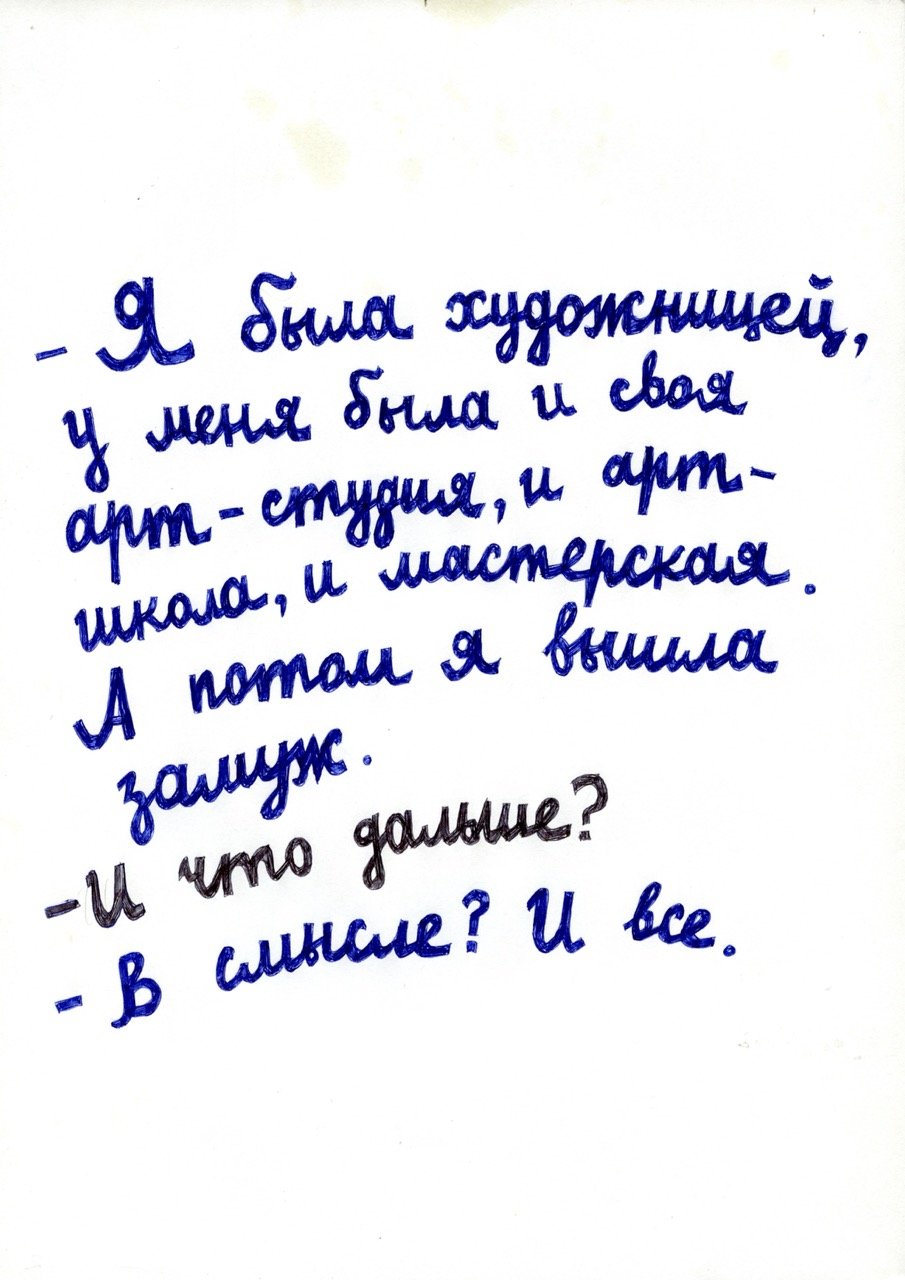 - Я была художницей,
у меня была и своя
арт-студия, и арт-
школа, и мастерская.
А потом я вышла
замуж.
-И что дальше?
- В смысле? И все.